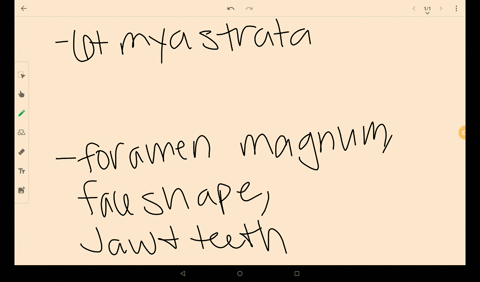 1/1
- lot mya strata
- foramen magnum,
face shape,
Jaw + teeth
Tr